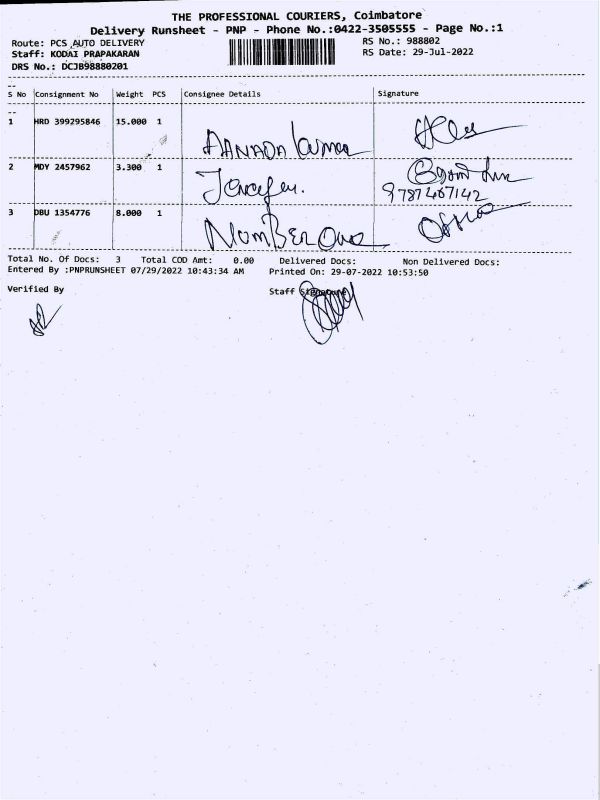 THE PROFESSIONAL COURIERS, Coimbatore
Delivery Runsheet - PNP - Phone No.:0422-3505555 - Page No.:1
Route: PCS AUTO DELIVERY RS No.: 988802
Staff: KODAI PRAPAKARAN RS Date: 29-Jul-2022
DRS No.: DCJB98880201
S No Consignment No Weight PCS Consignee Details Signature
1 HRD 399295846 15.000 1
AANADA Kumar
2 MDY 2457962 3.300 1
9787467142
3 DBU 1354776 8.000 1
NumBER One
Total No. Of Docs: 3 Total COD Amt: 0.00 Delivered Docs: Non Delivered Docs:
Entered By :PNPRUNSHEET 07/29/2022 10:43:34 AM Printed On: 29-07-2022 10:53:50
Verified By Staff Signature